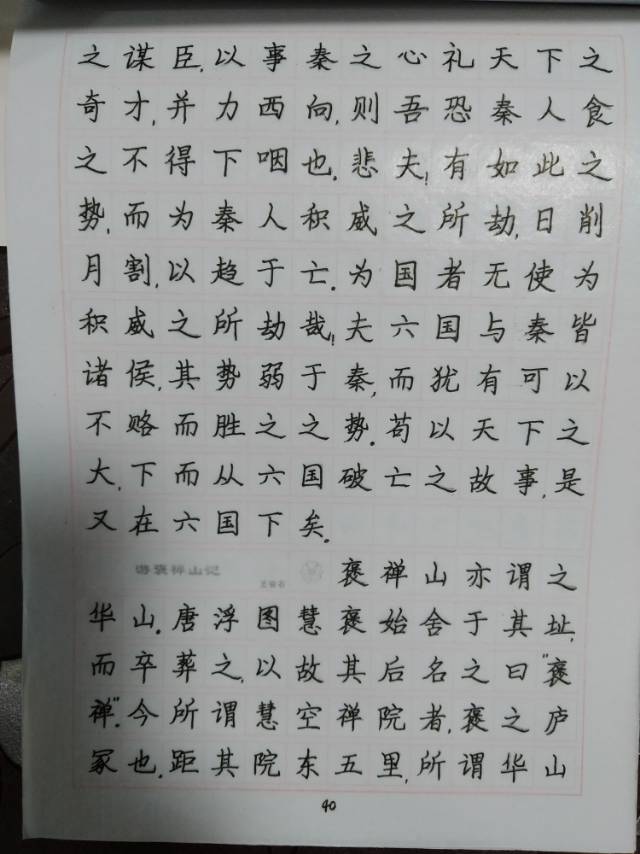 之谋臣,以事秦之心礼天下之
奇才,并力西向,则吾恐秦人食
之不得下咽也。悲夫!有如此之
势,而为秦人积威之所劫,日削
月割,以趋于亡。为国者无使为
积威之所劫哉!夫六国与秦皆
诸侯,其势弱于秦,而犹有可以
不赂而胜之之势。苟以天下之
大,下而从六国破亡之故事,是
又在六国下矣。
游褒禅山记 王安石
褒禅山亦谓之
华山。唐浮图慧褒始舍于其址,
而卒葬之,以故其后名之曰“褒
禅”。今所谓慧空禅院者,褒之庐
冢也。距其院东五里,所谓华山
40